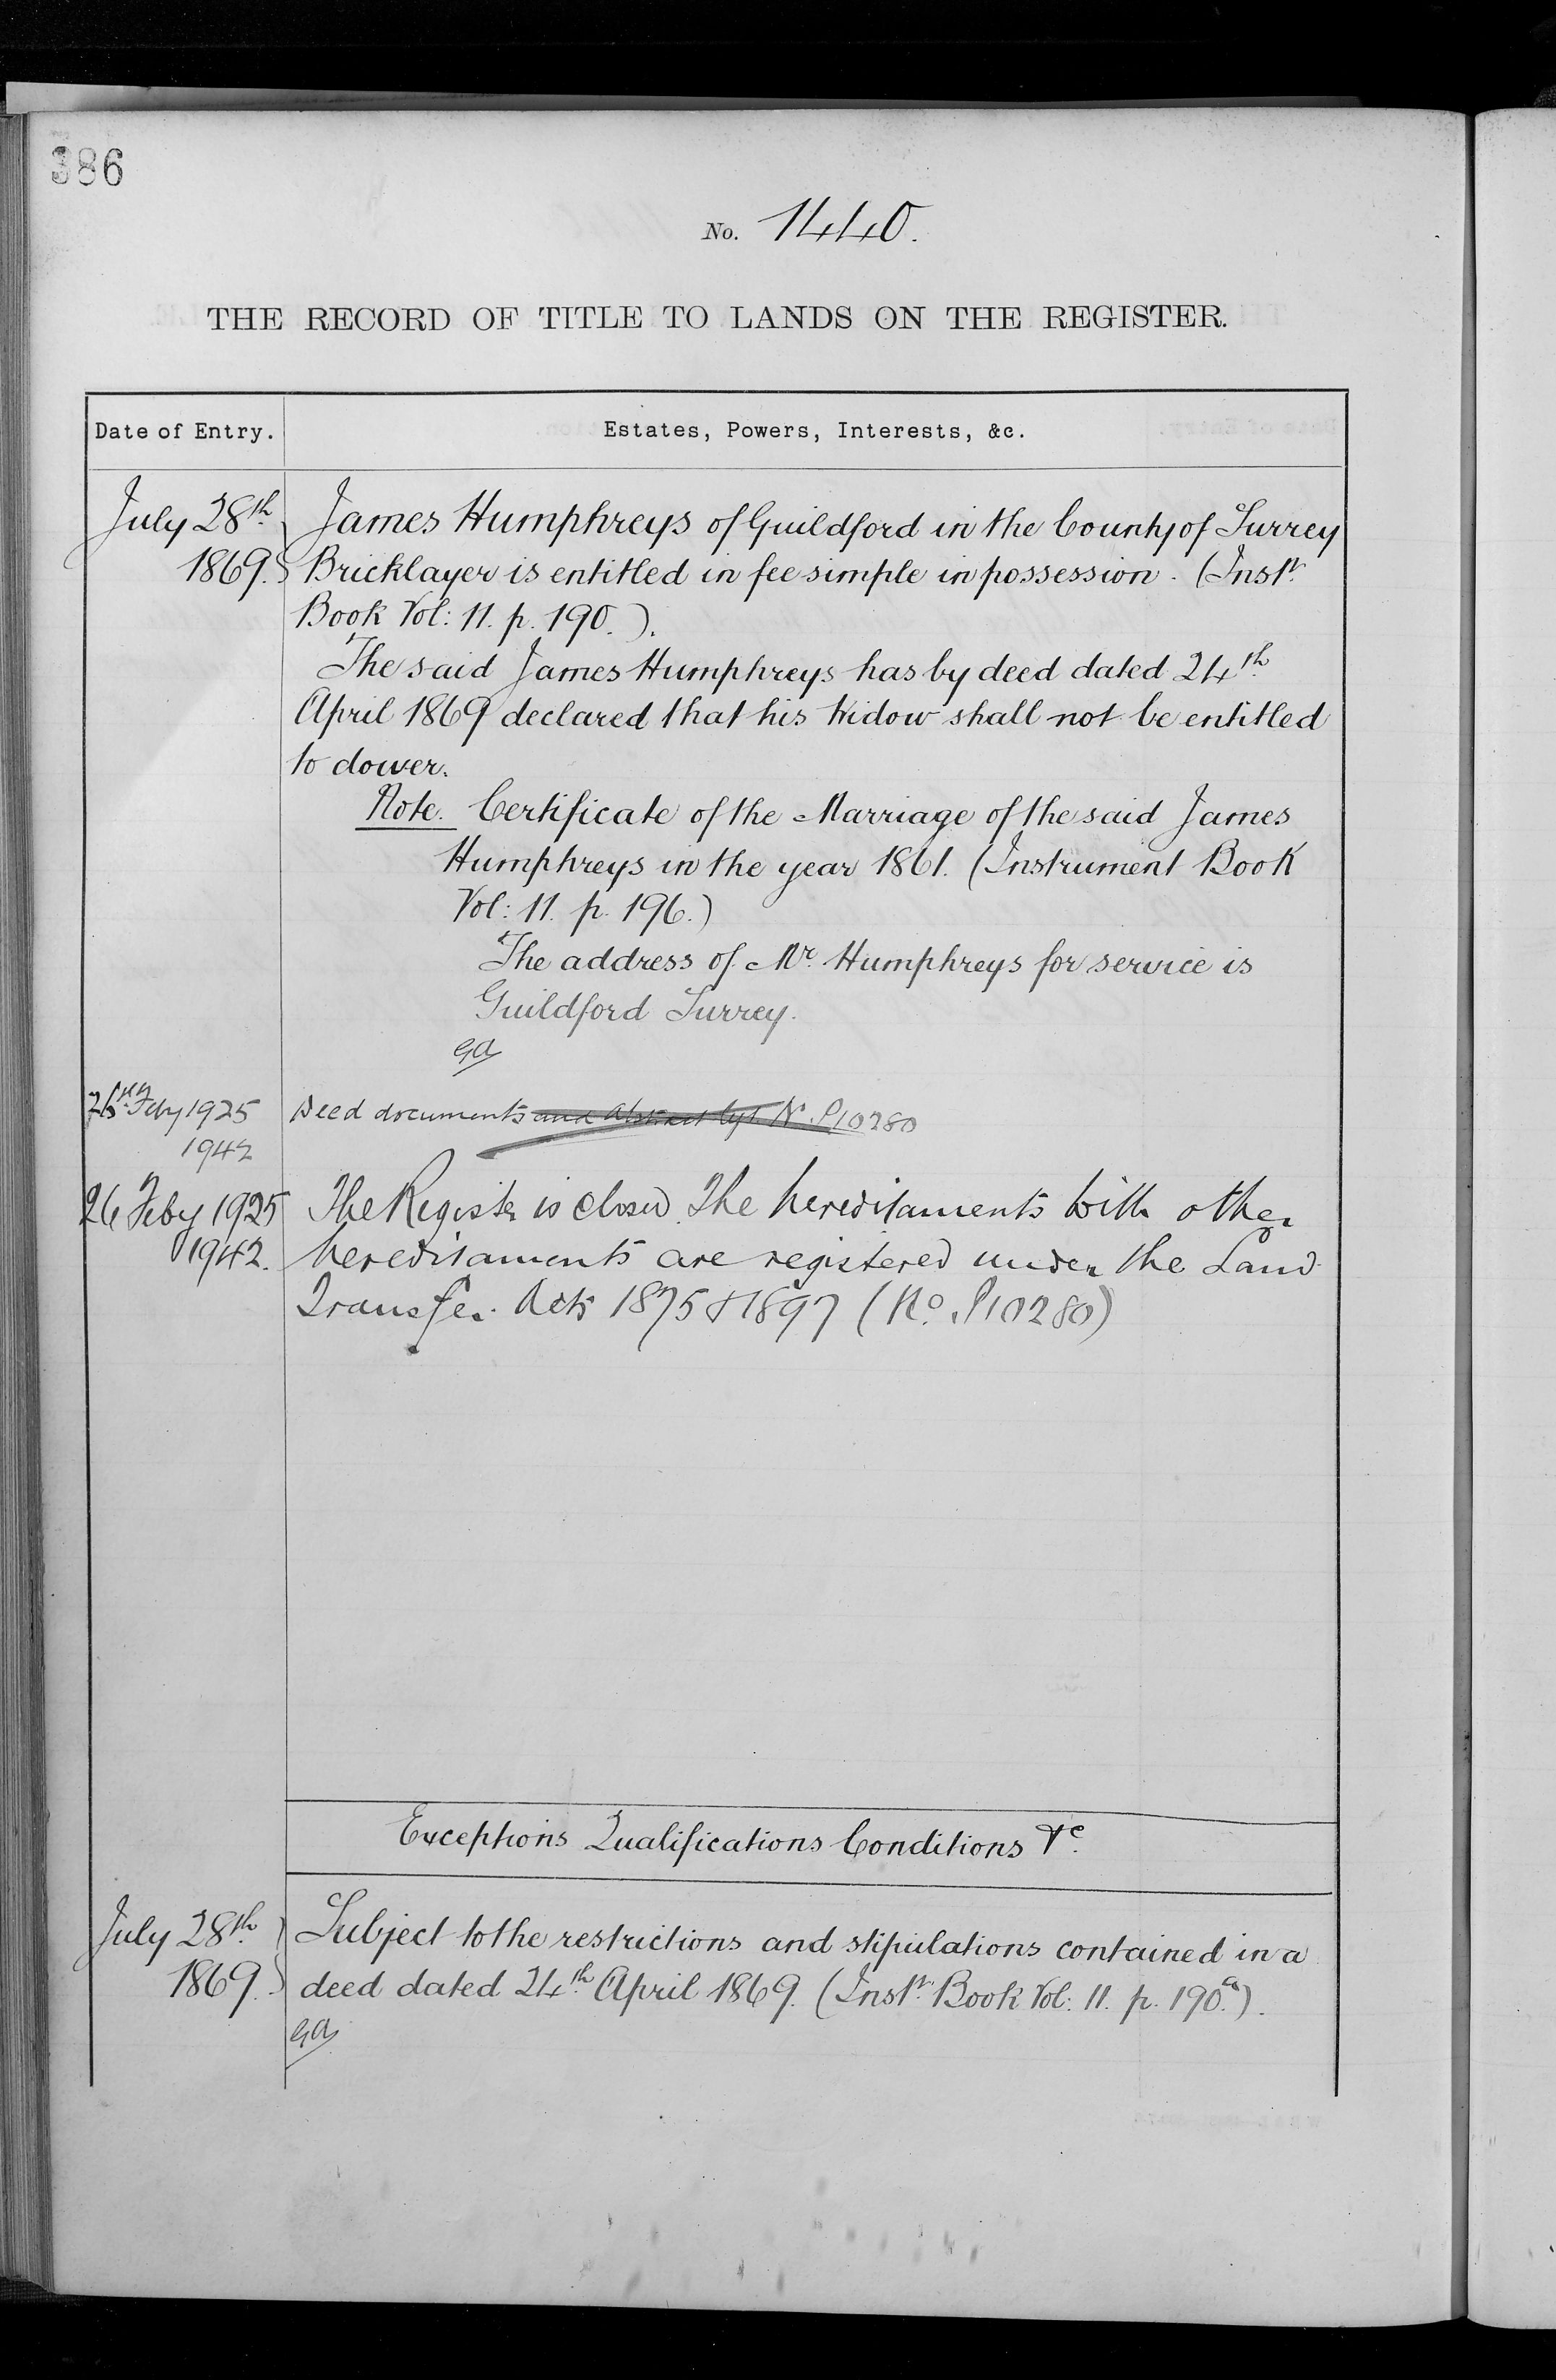 386
No. 1440.
THE RECORD OF TITLE TO LANDS ON THE REGISTER.
Date of Entry. Estates, Powers, Interests, &c.
July 28th James Humphreys of Guildford in the County of Surrey
1869. Bricklayer is entitled in fee simple in possession. (Instr.
Book Vol: 11. p. 190.).
The said James Humphreys has by deed dated 24th
April 1869 declared that his Widow shall not be entitled
to dower.
Note. Certificate of the Marriage of the said James
Humphreys in the year 1861. (Instrument Book
Vol: 11. p. 196.)
The address of Mr. Humphreys for service is
Guildford Surrey.
GA
26th Feby 1925 Deed documents and Abstract No. P10280
1942
26 Feby 1925 The Register is closed. The hereditaments with other
1942. hereditaments are registered under the Land
Transfer Acts 1875 & 1897 (No. P10280)
Exceptions Qualifications Conditions &c.
July 28th Subject to the restrictions and stipulations contained in a
1869. deed dated 24th April 1869. (Instr. Book Vol: 11. p. 190a.).
GA